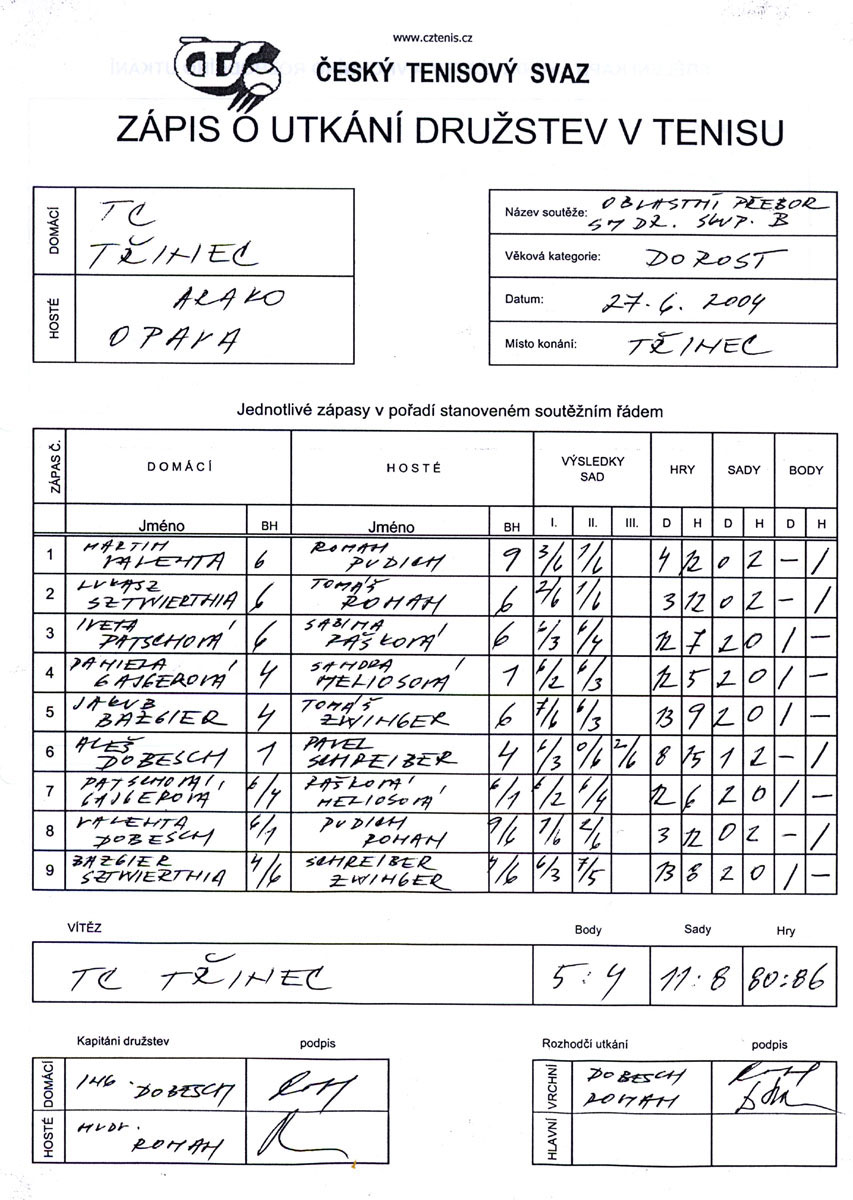 www.cztenis.cz
ČESKÝ TENISOVÝ SVAZ
ZÁPIS O UTKÁNÍ DRUŽSTEV V TENISU
DOMÁCÍ
TC
TŘINEC
HOSTÉ
ARAKO
OPAVA
Název soutěže: OBLASTNÍ PŘEBOR
SM DR. SKUP. B
Věková kategorie: DOROST
Datum: 27.6. 2004
Místo konání: TŘINEC
Jednotlivé zápasy v pořadí stanoveném soutěžním řádem
ZÁPAS Č. DOMÁCÍ HOSTÉ VÝSLEDKY SAD HRY SADY BODY
Jméno BH Jméno BH I. II. III. D H D H D H
1 MARTIN VALENTA 6 ROMAN PUDICH 9 3/6 1/6 4 12 0 2 – 1
2 LUKASZ SZTWIERTNIA 6 TOMÁŠ ROMAN 6 2/6 1/6 3 12 0 2 – 1
3 IVETA PATSCHOVÁ 6 SABINA RAŠKOVÁ 6 6/3 6/4 12 7 2 0 1 –
4 DANIELA GAJGEROVÁ 4 SANDRA MELIOSOVÁ 1 6/2 6/3 12 5 2 0 1 –
5 JAKUB BAZGIER 4 TOMÁŠ ZWINGER 6 7/6 6/3 13 9 2 0 1 –
6 ALEŠ DOBESCH 1 PAVEL SCHREIBER 4 6/3 0/6 2/6 8 15 1 2 – 1
7 PATSCHOVÁ GAJGEROVÁ 6/4 RAŠKOVÁ MELIOSOVÁ 6/1 6/2 6/4 12 6 2 0 1 –
8 VALENTA DOBESCH 6/1 PUDICH ROMAN 9/6 1/6 2/6 3 12 0 2 – 1
9 BAZGIER SZTWIERTNIA 4/6 SCHREIBER ZWINGER 4/6 6/3 7/5 13 8 2 0 1 –
VÍTĚZ Body Sady Hry
TC TŘINEC 5:4 11:8 80:86
Kapitáni družstev podpis Rozhodčí utkání podpis
DOMÁCÍ ING. DOBESCH
HOSTÉ MUDr. ROMAN
VRCHNÍ DOBESCH
ROMAN
HLAVNÍ